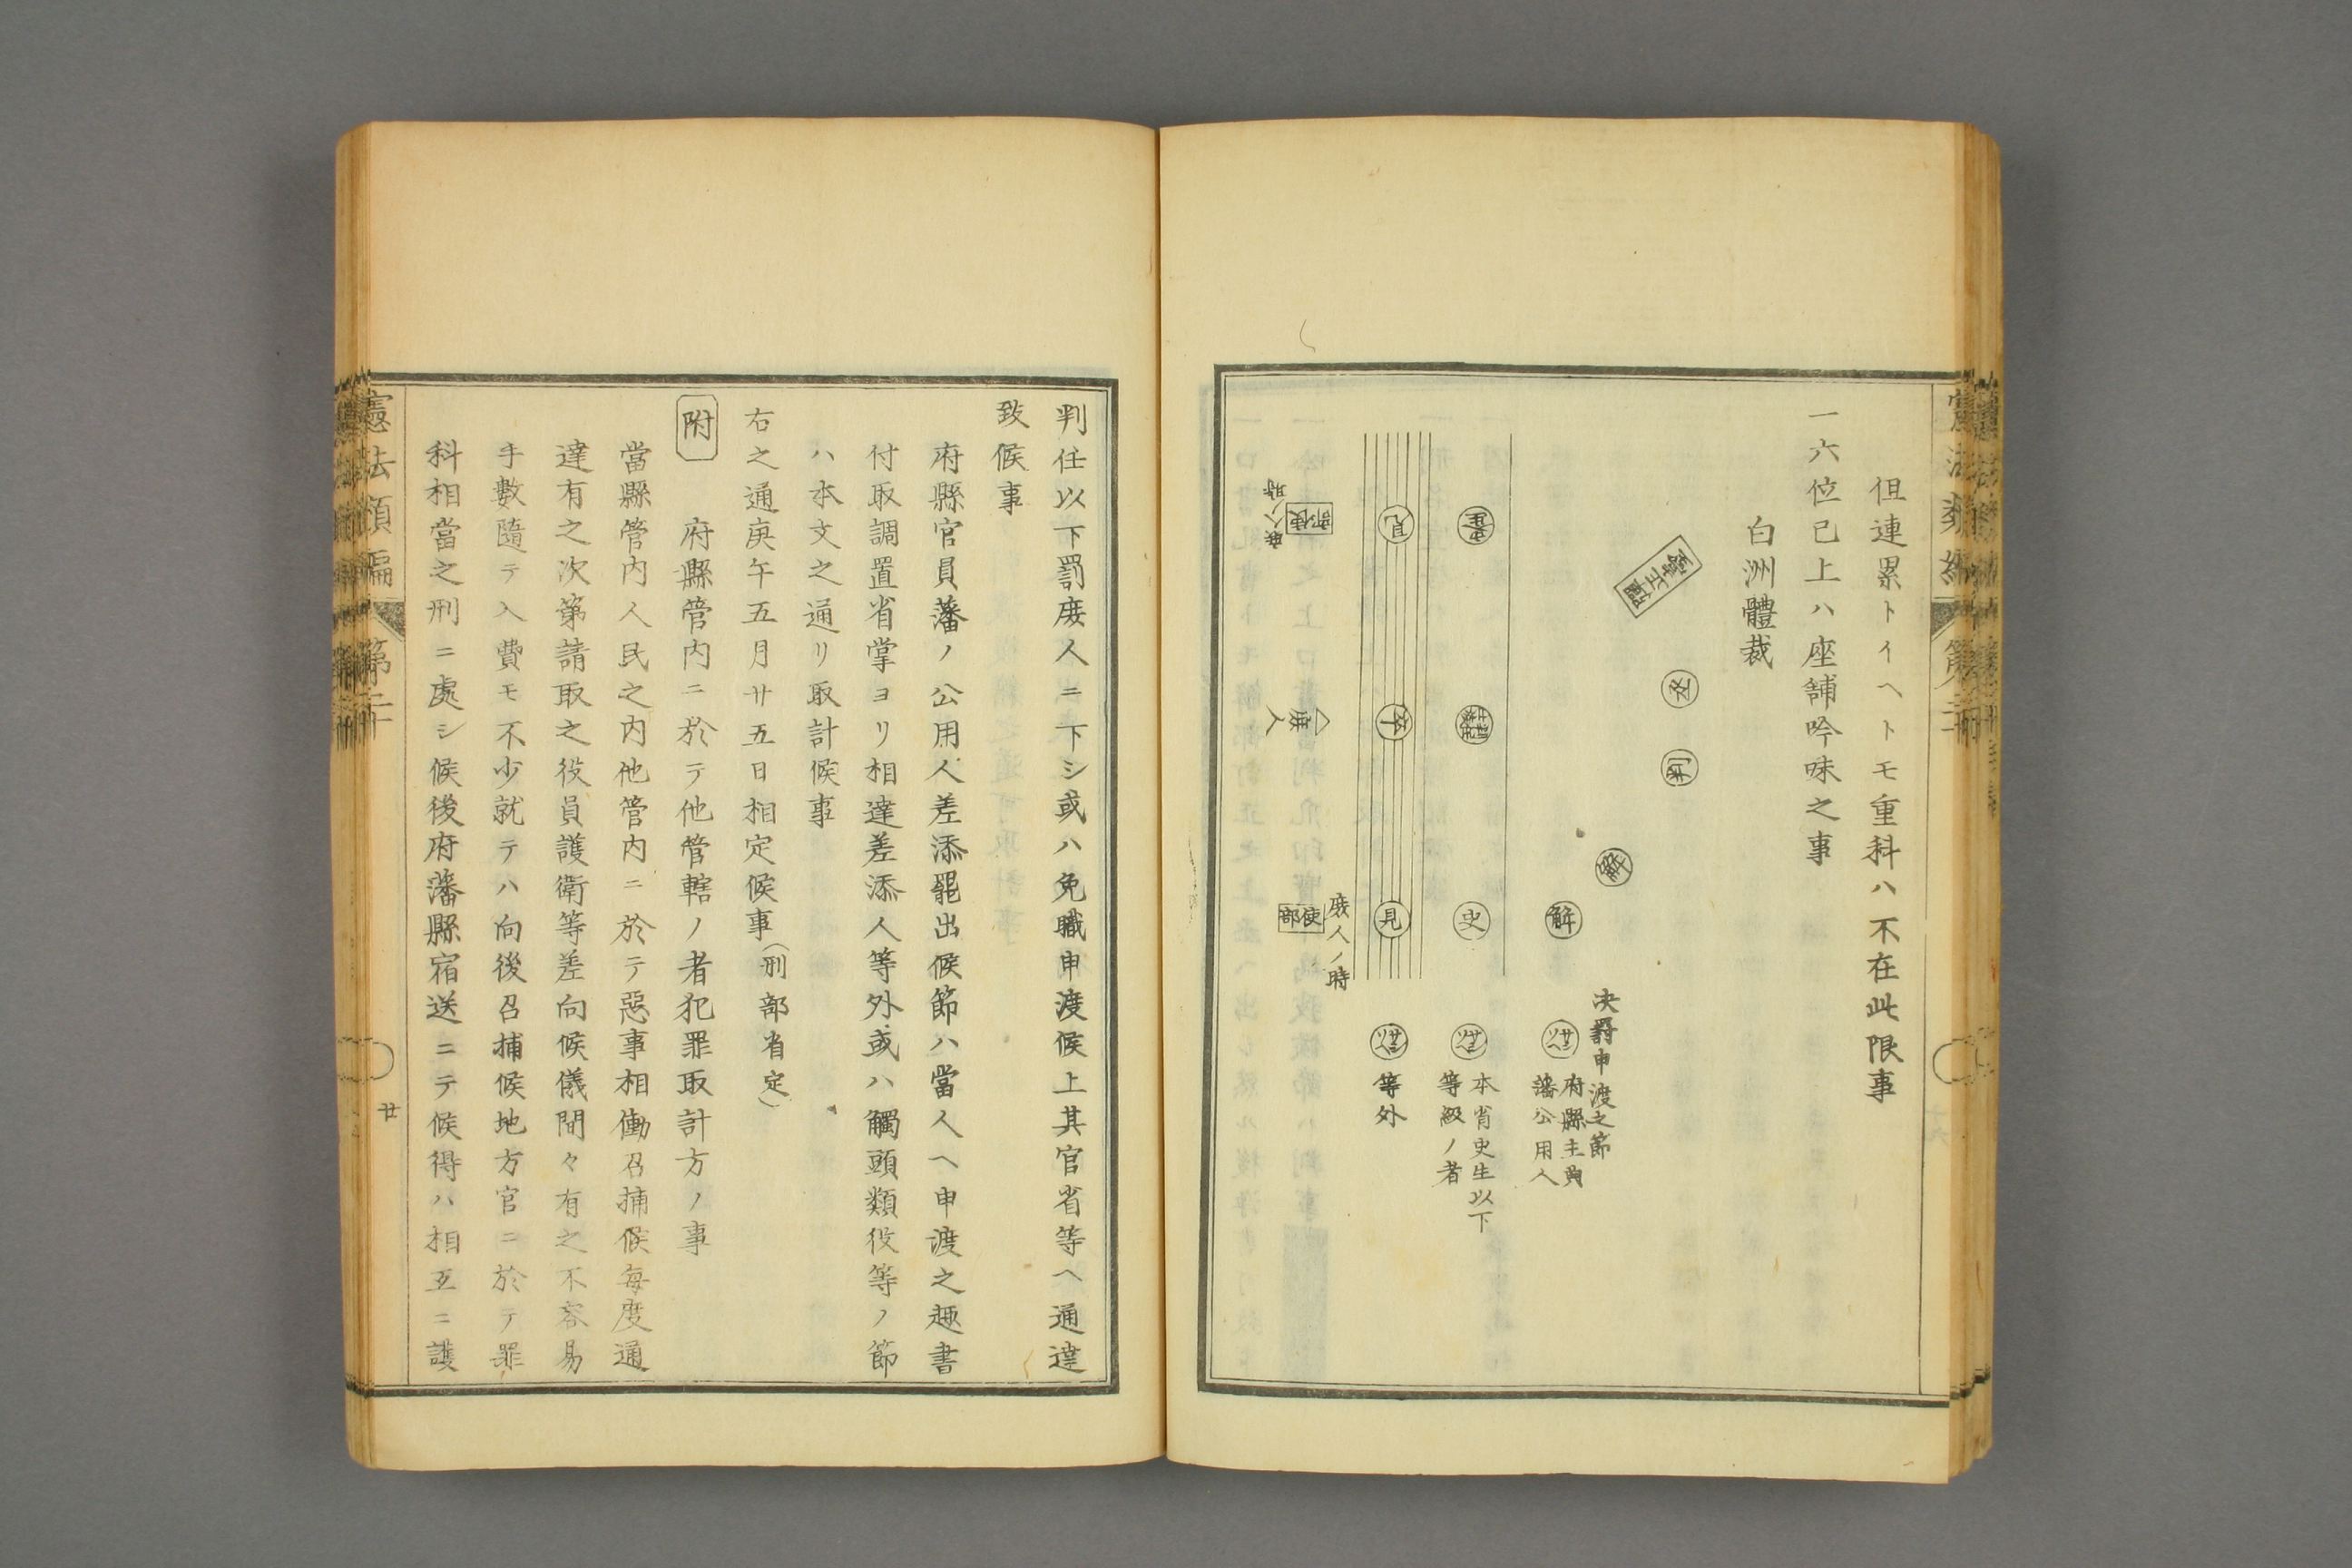 但連累トイヘトモ重科ハ不在此限事
一六位已上ハ座舗吟味之事
白洲體裁
丞
判
解
解
決罸申渡之節
府縣主典
藩公用人
史
本省史生以下
等級ノ者
見
卒
見
等外
庻人ノ時
使部
庻人
庻人ノ時
使部
判任以下罰庻人ニ下シ或ハ免職申渡候上其官省等ヘ通達
致候事
府縣官員藩ノ公用人差添罷出候節ハ當人ヘ申渡之趣書
付取調置省掌ヨリ相達差添人等外或ハ觸頭類役等ノ節
ハ本文之通リ取計候事
右之通庚午五月廿五日相定候事（刑部省定）
附
府縣管内ニ於テ他管轄ノ者犯罪取計方ノ事
當縣管内人民之内他管内ニ於テ惡事相働召捕候毎度通
達有之次第請取之役員護衛等差向候儀間々有之不容易
手數隨テ入費モ不少就テハ向後召捕候地方官ニ於テ罪
科相當之刑ニ處シ候後府藩縣宿送ニテ候得ハ相互ニ護
憲法類編
第二十
廿